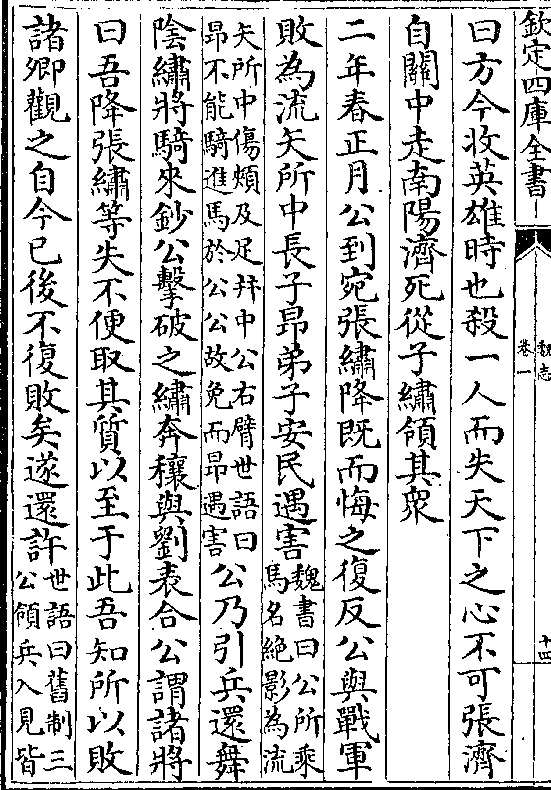 欽定四庫全書
魏志
卷一
十四
曰方今收英雄時也殺一人而失天下之心不可張濟
自關中走南陽濟死從子繡領其衆
二年春正月公到宛張繡降既而悔之復反公與戰軍
敗為流矢所中長子昂弟子安民遇害魏書曰公所乘馬名絶影為流
矢所中傷頰及足并中公右臂世語曰昂不能騎進馬於公公故免而昂遇害公乃引兵還舞
隂繡將騎來鈔公擊破之繡奔穰與劉表合公謂諸將
曰吾降張繡等失不便取其質以至于此吾知所以敗
諸卿觀之自今已後不復敗矣遂還許世語曰舊制三公領兵入見皆